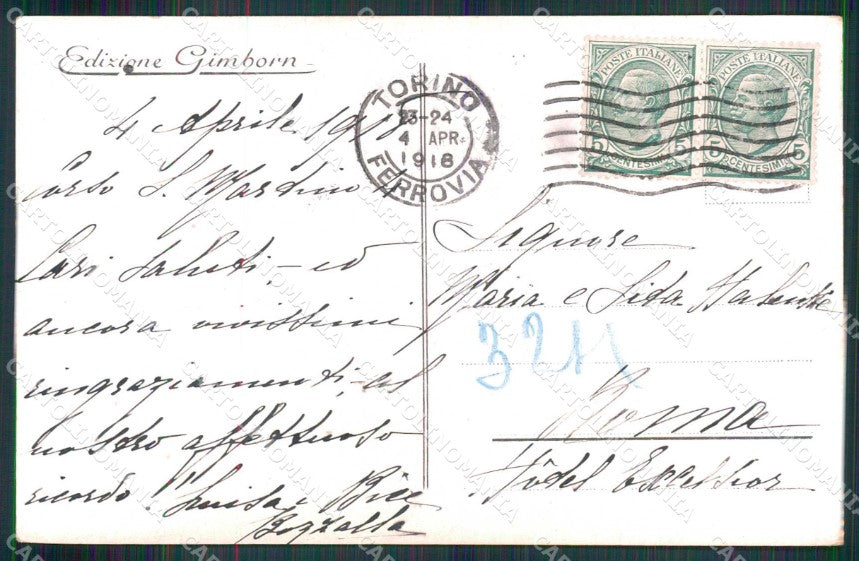 Edizione Gimborn
4 Aprile 1918
Corso S. Martino 4
Cari saluti, - ed
ancora vivissimi
ringraziamenti, al
nostro affettuoso
ricordo! Luisa e Bice
Bozzalla
TORINO
23-24
4 APR.
1918
FERROVIA
POSTE ITALIANE
5 CENTESIMI 5
POSTE ITALIANE
5 CENTESIMI 5
Signore
Maria e Lida
3211
Roma
Hôdel Excelsior
CARTOLINOMANIA